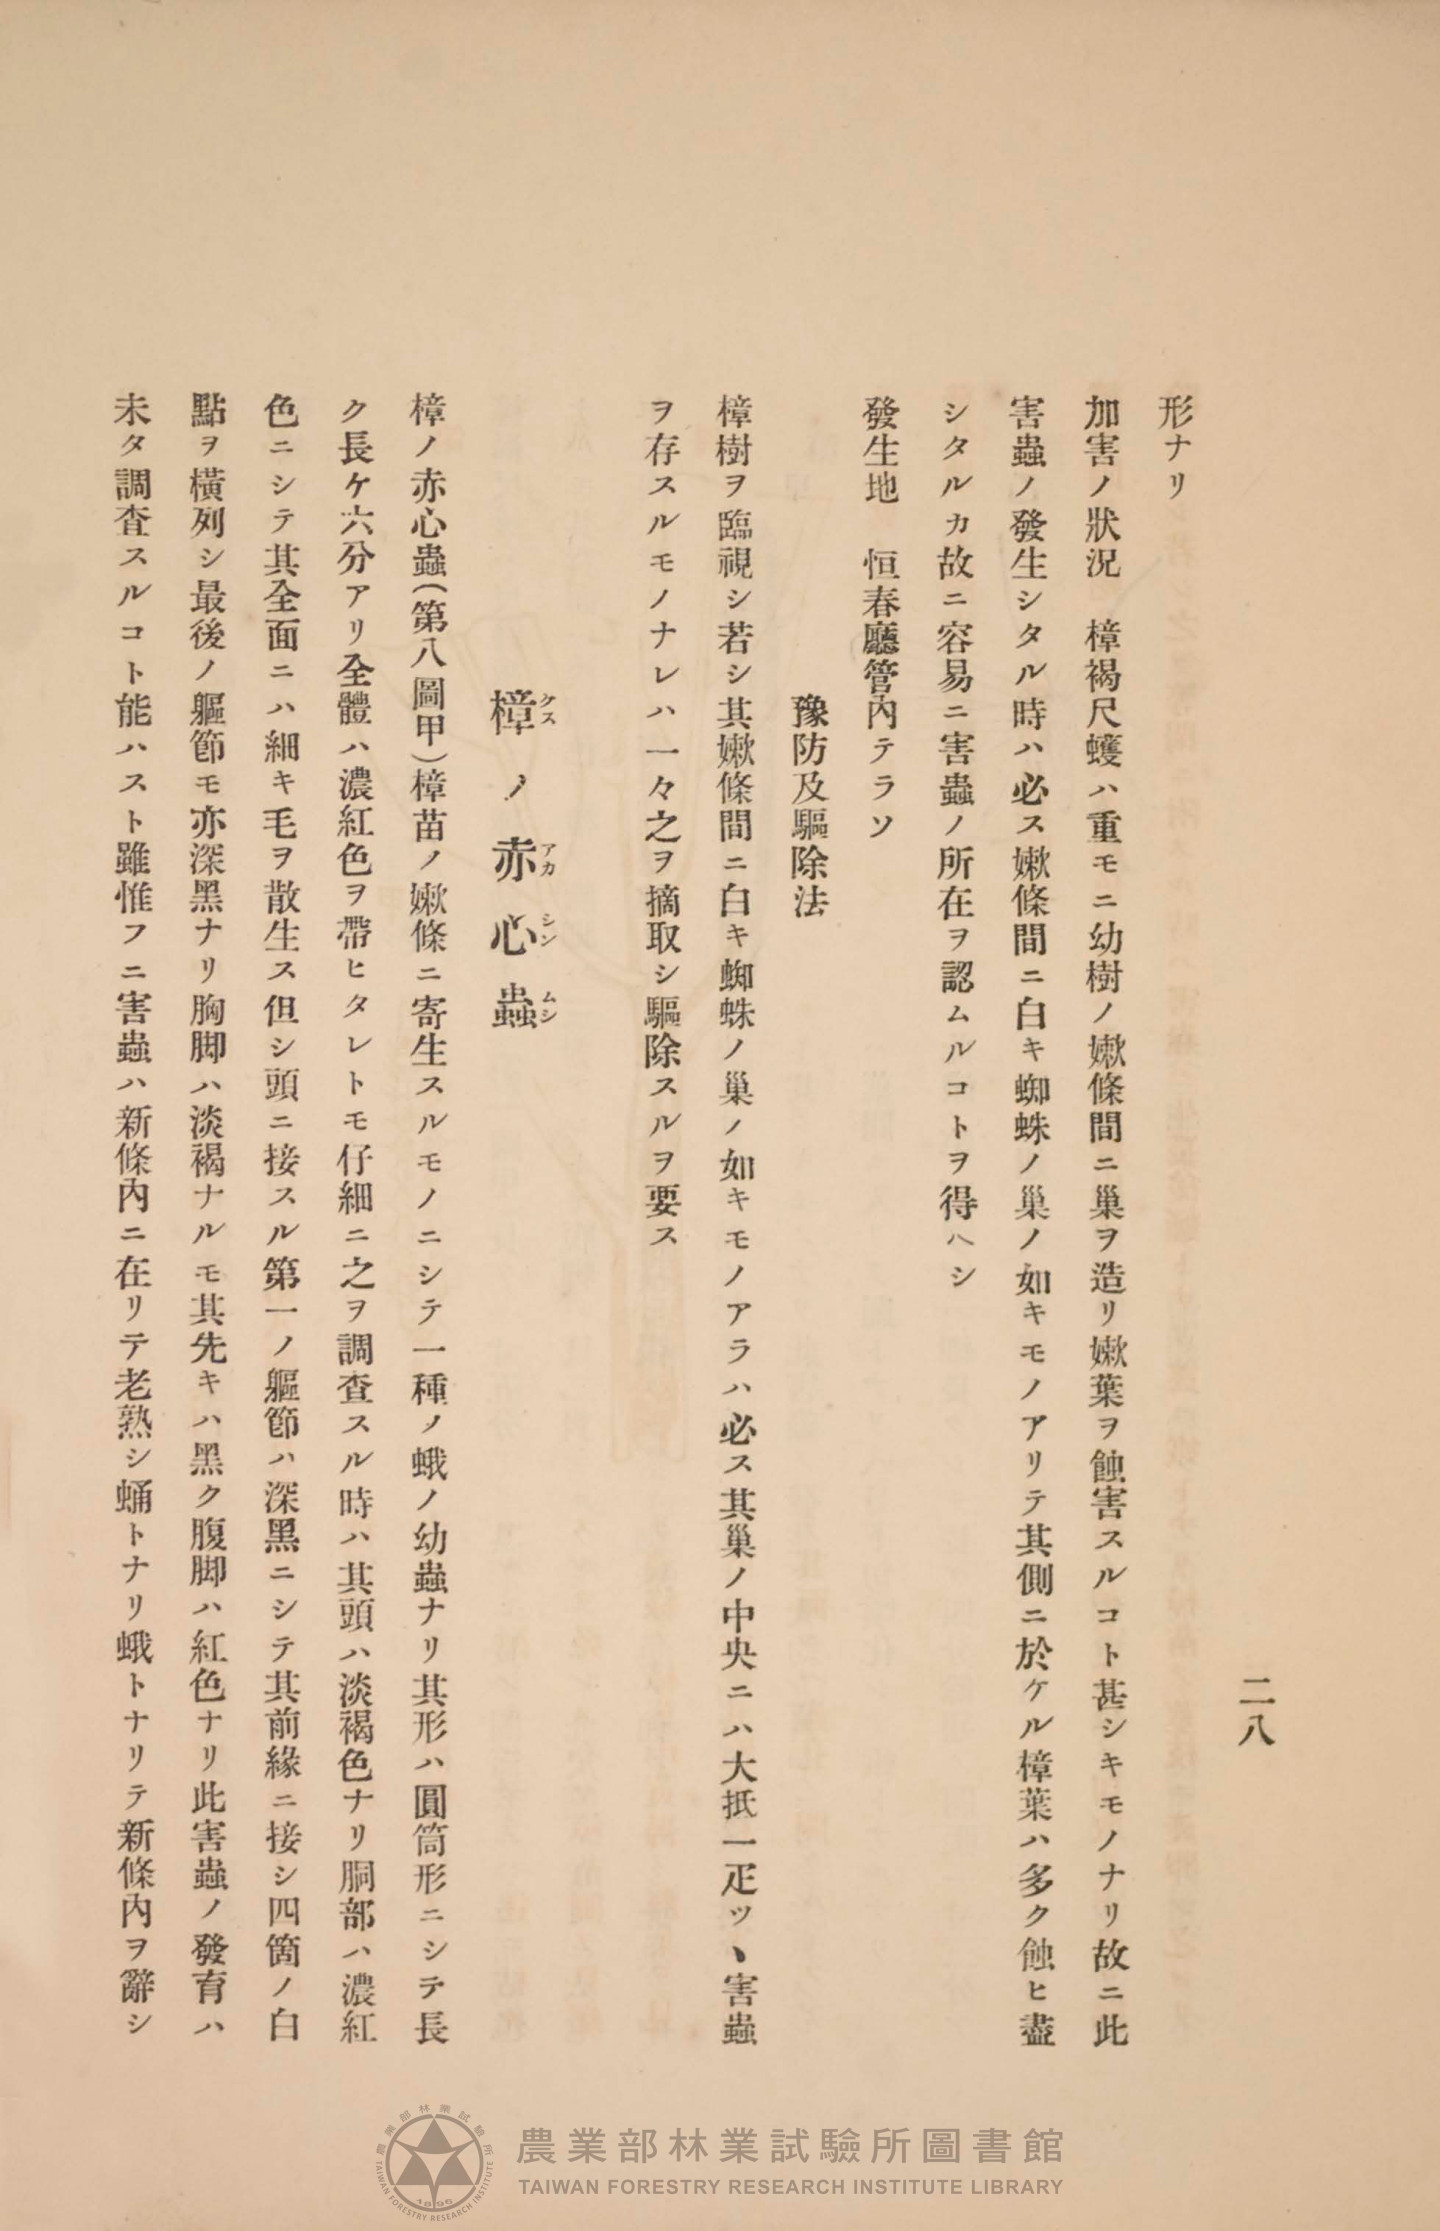 二八
形ナリ
加害ノ狀況　樟褐尺蠖ハ重モニ幼樹ノ嫩條間ニ巢ヲ造リ嫩葉ヲ蝕害スルコト甚シキモノナリ故ニ此
害蟲ノ發生シタル時ハ必ス嫩條間ニ白キ蜘蛛ノ巢ノ如キモノアリテ其側ニ於ケル樟葉ハ多ク蝕ヒ盡
シタルカ故ニ容易ニ害蟲ノ所在ヲ認ムルコトヲ得ヘシ
發生地　恒春廳管內テラソ
豫防及驅除法
樟樹ヲ臨視シ若シ其嫩條間ニ白キ蜘蛛ノ巢ノ如キモノアラハ必ス其巢ノ中央ニハ大抵一疋ツヽ害蟲
ヲ存スルモノナレハ一々之ヲ摘取シ驅除スルヲ要ス
樟ノ赤心蟲
クス アカ シン ムシ
樟ノ赤心蟲(第八圖甲)樟苗ノ嫩條ニ寄生スルモノニシテ一種ノ蛾ノ幼蟲ナリ其形ハ圓筒形ニシテ長
ク長ケ六分アリ全體ハ濃紅色ヲ帶ヒタレトモ仔細ニ之ヲ調査スル時ハ其頭ハ淡褐色ナリ胴部ハ濃紅
色ニシテ其全面ニハ細キ毛ヲ散生ス但シ頭ニ接スル第一ノ軀節ハ深黑ニシテ其前緣ニ接シ四箇ノ白
點ヲ橫列シ最後ノ軀節モ亦深黑ナリ胸脚ハ淡褐ナルモ其先キハ黑ク腹脚ハ紅色ナリ此害蟲ノ發育ハ
未タ調査スルコト能ハスト雖惟フニ害蟲ハ新條內ニ在リテ老熟シ蛹トナリ蛾トナリテ新條內ヲ辭シ
農業部林業試驗所
TAIWAN FORESTRY RESEARCH INSTITUTE
1896
農業部林業試驗所圖書館
TAIWAN FORESTRY RESEARCH INSTITUTE LIBRARY